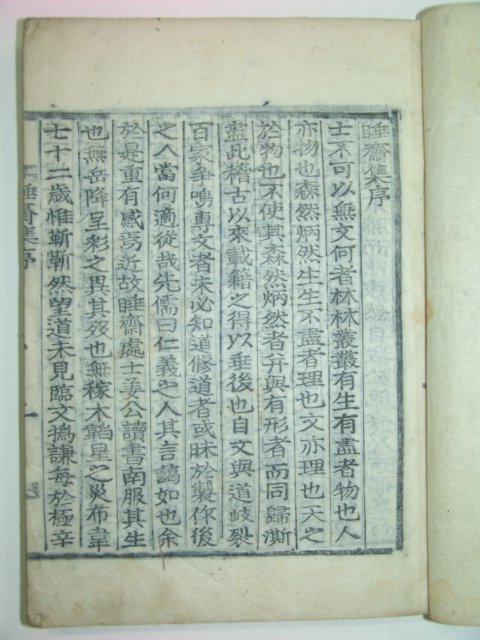 睡齋集序
士不可以無文何者林林叢叢有生有盡者物也人
亦物也森然炳然生生不盡者理也文亦理也天之
於物也不使其森然炳然者幷與有形者而同歸澌
盡此稽古以來載籍之得以垂後也自文與道岐裂
百家爭鳴專文者未必知道修道者或昧於製作後
之人當何適從哉先儒曰仁義之人其言藹如也余
於是重有感焉近故睡齋處士姜公讀書南服其生
也無岳降呈彩之異其歿也無稼木韜星之災布韋
七十二歲惟斬斬然望道未見臨文撝謙每於極辛
睡齋集序
一